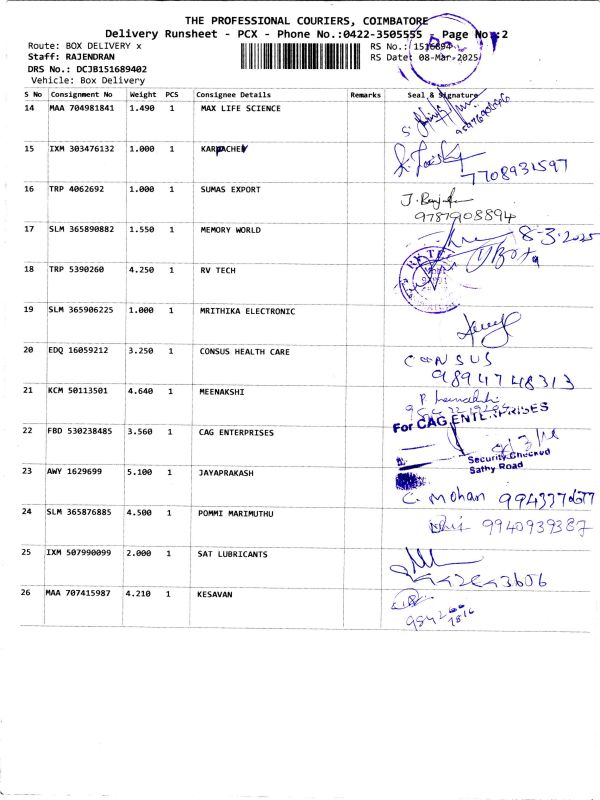 THE PROFESSIONAL COURIERS, COIMBATORE
Delivery Runsheet - PCX - Phone No.:0422-3505555 - Page No.:2
Route: BOX DELIVERY x RS No.: 1516894
Staff: RAJENDRAN RS Date: 08-Mar-2025
DRS No.: DCJB151689402
Vehicle: Box Delivery
S No Consignment No Weight PCS Consignee Details Remarks Seal & Signature
14 MAA 704981841 1.490 1 MAX LIFE SCIENCE
15 IXM 303476132 1.000 1 KARPACHEN
7708931597
16 TRP 4062692 1.000 1 SUMAS EXPORT
9787908894
17 SLM 365890882 1.550 1 MEMORY WORLD
8-3-2025
18 TRP 5390260 4.250 1 RV TECH
19 SLM 365906225 1.000 1 MRITHIKA ELECTRONIC
20 EDQ 16059212 3.250 1 CONSUS HEALTH CARE
CONSUS
9894748313
21 KCM 50113501 4.640 1 MEENAKSHI
For CAG ENTERPRISES
22 FBD 530238485 3.560 1 CAG ENTERPRISES
Security Checked
Sathy Road
23 AWY 1629699 5.100 1 JAYAPRAKASH
C. Mohan
24 SLM 365876885 4.500 1 POMMI MARIMUTHU
9940939387
25 IXM 507990099 2.000 1 SAT LUBRICANTS
26 MAA 707415987 4.210 1 KESAVAN